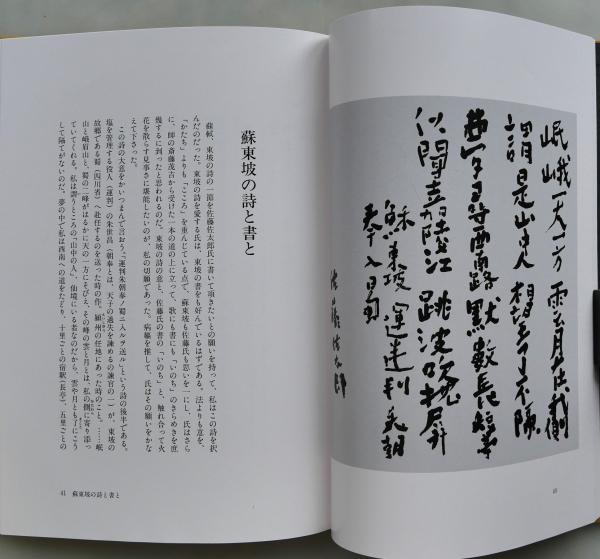 岷峨天一方 雲月在我側
謂是山中人 相望了不隔
夢尋西南路 默數長短亭
似聞嘉陵江 跳波吹枕屏
蘇東坡 送運判朱朝
奉入蜀
佐藤佐太郎
40
蘇東坡の詩と書と
蘇軾、東坡の詩の一節を佐藤佐太郎氏に書いて頂きたいとの願いを持って、私はこの詩を択
んだのだった。東坡の詩を愛する氏は、東坡の書をも好んでいるはずである。法よりも意を、
「かたち」よりも「こころ」を重んじている点で、蘇東坡も佐藤氏も思いを一にし、氏はさら
に、師の斎藤茂吉から受けた一本の道の上に立って、歌にも書にも「いのち」のきらめきを庶
幾するに到ったと思われるのだ。東坡の詩の意と、佐藤氏の書の「いのち」と、触れ合って火
花を散らす見事さに堪能したいのが、私の切願であった。病軀を推して、氏はその願いをかな
えて下さった。
この詩の大意をかいつまんで言おう。「運判朱朝奉ノ蜀ニ入ルヲ送ル」という詩の後半である。
塩を管理する役人（運判）の朱世昌（朝奉とは、天子の過失を諫める諫官の一）が、東坡の
故郷である蜀（四川省）へ赴任するのを送った時の作。潁州の任地にあった時のこと。……岷
山と峨眉山と、蜀の二峰がはるかに天の一方にそびえ、その峰の雲と月とは、私の側に寄り添っ
ていてくれる。私は謂うところの「山中の人」、仙境にいる者なのだから、雲や月とも了にこう
して隔てがないのだ。夢の中で私は西南への道をたどり、十里ごとの宿駅（長亭）、五里ごとの
41 蘇東坡の詩と書と